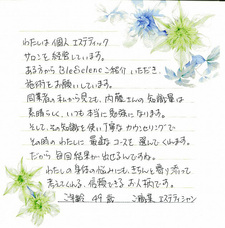 わたしは個人エステティック
サロンを経営しています。
ある方から BleSelene ご紹介いただき、
施術をお願いしています。
同業者の私から見ても、内藤さんの知識量は
素晴らしく、いつも本当に勉強になります。
そして、その知識を使い丁寧なカウンセリングで
その時のわたしに最適なコースを選んでくれます。
だから毎回結果が出せるんですね。
わたしの身体の悩みにも、きちんと寄り添って
考えてくれる、信頼できるお人柄です。
ご年齢 49歳 ご職業 エステティシャン